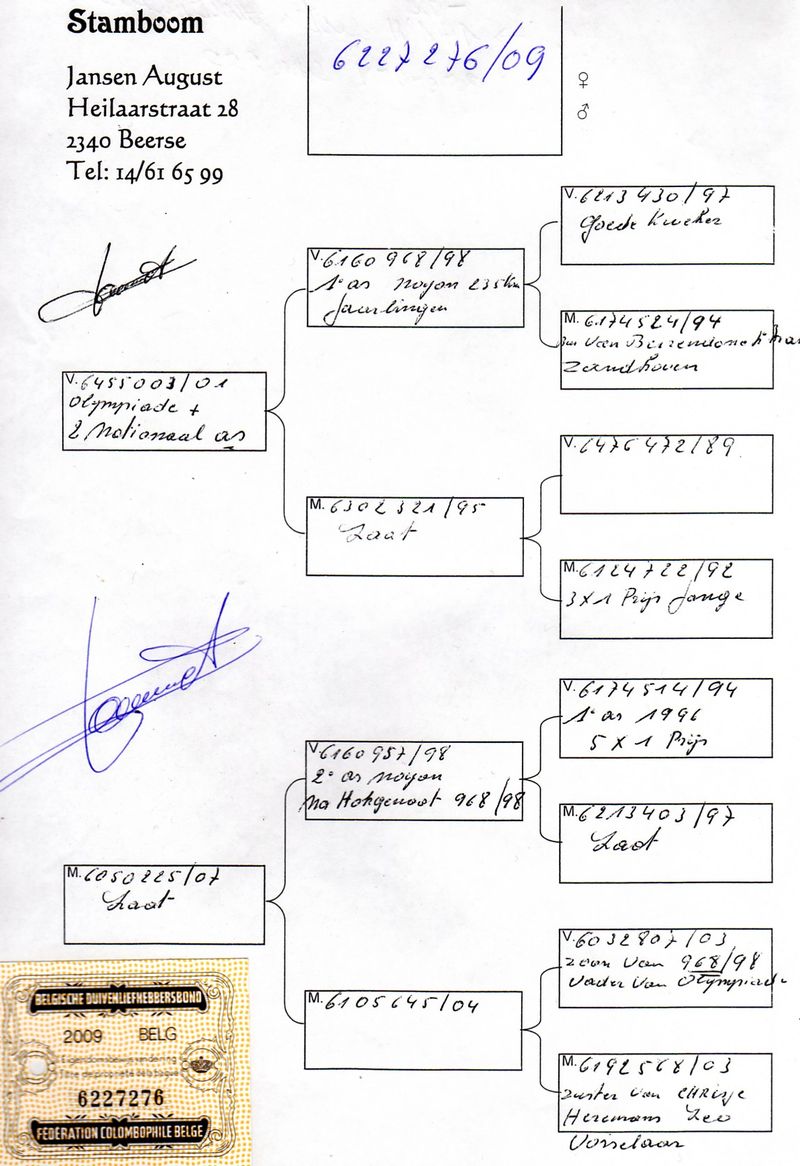 Stamboom
Jansen August
Heilaarstraat 28
2340 Beerse
Tel: 14/61 65 99
6227276/09
♀
♂
V. 6455003/01
Olympiade +
2 Nationaal as
V. 6160968/98
1e as Noyon 235km
Jaarlingen
V. 6213430/97
Goede Kweker
M. 6174524/94
Zandhoven
M. 6302321/95
Laat
V. 6476472/89
M. 6124722/92
3 x 1 Prijs Jonge
M. 6050225/07
Laat
V. 6160957/98
2e as Noyon
Na Hokgenoot 968/98
V. 6174514/94
1e as 1996
5 x 1 Prijs
M. 6213403/97
Laat
M. 6105645/04
V. 6032807/03
zoon van 968/98
vader van Olympiade
M. 6192568/03
zuster van
Heremans Leo
Vorselaar
BELGISCHE DUIVENLIEFHEBBERSBOND
2009 BELG
6227276
FEDERATION COLOMBOPHILE BELGE